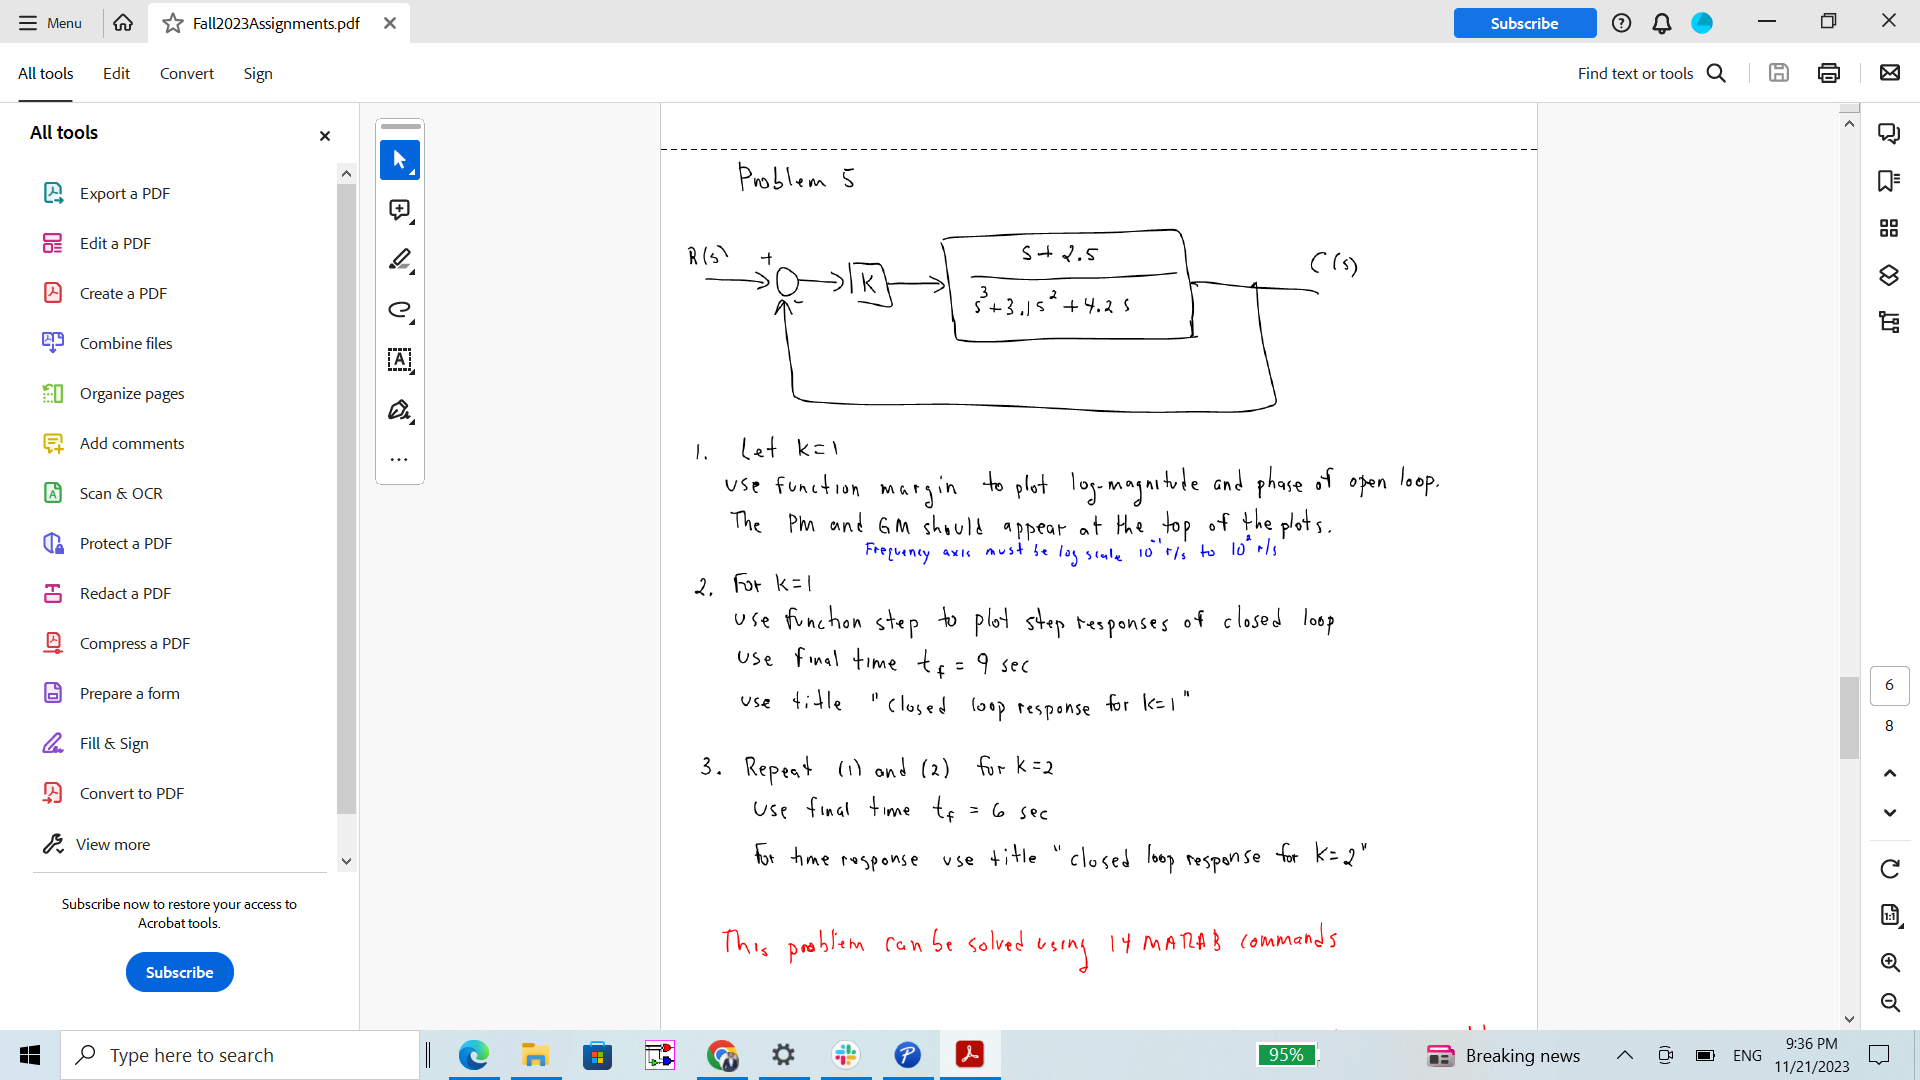 Menu
Fall2023Assignments.pdf
Subscribe
All tools
Edit
Convert
Sign
Find text or tools
All tools
Export a PDF
Edit a PDF
Create a PDF
Combine files
Organize pages
Add comments
Scan & OCR
Protect a PDF
Redact a PDF
Compress a PDF
Prepare a form
Fill & Sign
Convert to PDF
View more
Subscribe now to restore your access to
Acrobat tools.
Subscribe
Problem 5
R(s) +
-
K
s + 2.5
s³ + 3.1s² + 4.2 s
C(s)
1. Let k=1
use function margin to plot log-magnitude and phase of open loop.
The PM and GM should appear at the top of the plots.
Frequency axis must be log scale 10⁻¹ r/s to 10² r/s
2. For k=1
use function step to plot step responses of closed loop
use final time tf = 9 sec
use title "closed loop response for k=1"
3. Repeat (1) and (2) for k=2
use final time tf = 6 sec
For time response use title "closed loop response for k=2"
This problem can be solved using 14 MATLAB commands
6
8
Type here to search
95%
Breaking news
ENG
9:36 PM
11/21/2023